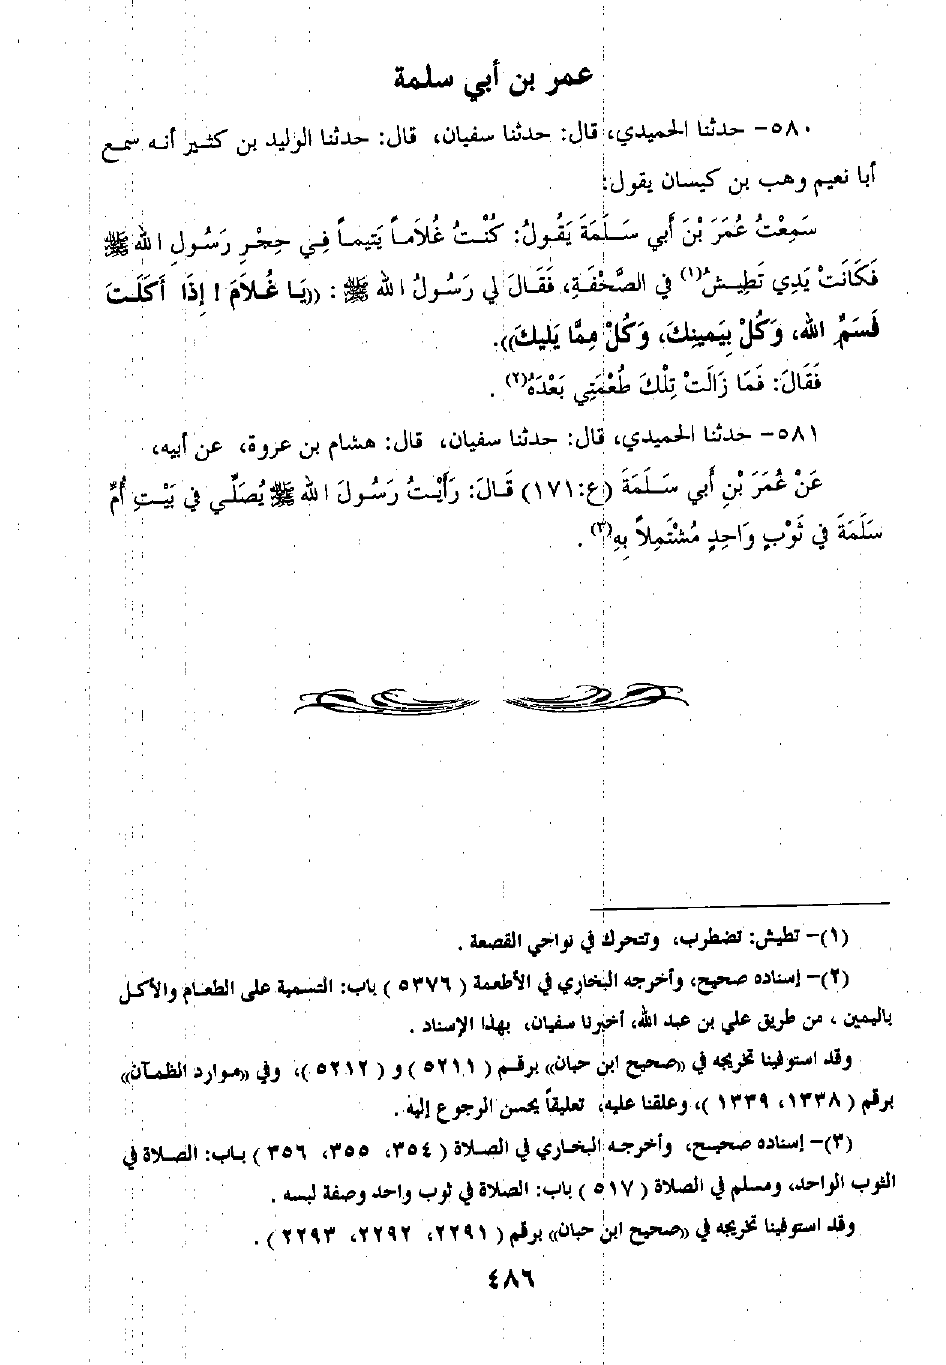 عمر بن أبي سلمة
٥٨٠- حدثنا الحميدي، قال: حدثنا سفيان، قال: حدثنا الوليد بن كثير أنه سمع
أبا نعيم وهب بن كيسان يقول:
سَمِعْتُ عُمَرَ بْنَ أَبي سَلَمَةَ يَقُولُ: كُنْتُ غُلَاماً يَتِيماً فِي حِجْرِ رَسُولِ الله ﷺ
فَكَانَتْ يَدِي تَطِيشُ(١) في الصَّحْفَةِ، فَقَالَ لي رَسُولُ الله ﷺ : ((يَا غُلَامَ ! إِذَا أَكَلْتَ
فَسَمِّ الله، وَكُلْ بِيَمينِكَ، وَكُلْ مِمَّا يَليكَ)).
فَقَالَ: فَمَا زَالَتْ تِلْكَ طُعْمَتِي بَعْدَهُ(٢) .
٥٨١- حدثنا الحميدي، قال: حدثنا سفيان، قال: هشام بن عروة، عن أبيه،
عَنْ عُمَرَ بْنِ أَبي سَلَمَةَ (ع:١٧١) قَالَ: رَأَيْتُ رَسُولَ الله ﷺ يُصَلِّي في بَيْتِ أُمِّ
سَلَمَةَ في ثَوْبٍ وَاحِدٍ مُشْتَمِلاً بِهِ(٣) .
(١)- تطيش: تضطرب، وتتحرك في نواحي القصعة .
(٢)- إسناده صحيح، وأخرجه البخاري في الأطعمة ( ٥٣٧٦ ) باب: التسمية على الطعام والأكل
باليمين ، من طريق علي بن عبد الله، أخبرنا سفيان، بهذا الإسناد .
وقد استوفينا تخريجه في ((صحيح ابن حبان)) برقم ( ٥٢١١ ) و ( ٥٢١٢ )، وفي ((موارد الظمآن))
برقم ( ١٣٣٨، ١٣٣٩ )، وعلقنا عليه، تعليقاً يحسن الرجوع إليه .
(٣)- إسناده صحيح، وأخرجه البخاري في الصلاة ( ٣٥٤، ٣٥٥، ٣٥٦ ) باب: الصلاة في
الثوب الواحد، ومسلم في الصلاة ( ٥١٧ ) باب: الصلاة في ثوب واحد وصفة لبسه .
وقد استوفينا تخريجه في ((صحيح ابن حبان)) برقم ( ٢٢٩١، ٢٢٩٢، ٢٢٩٣ ) .
٤٨٦